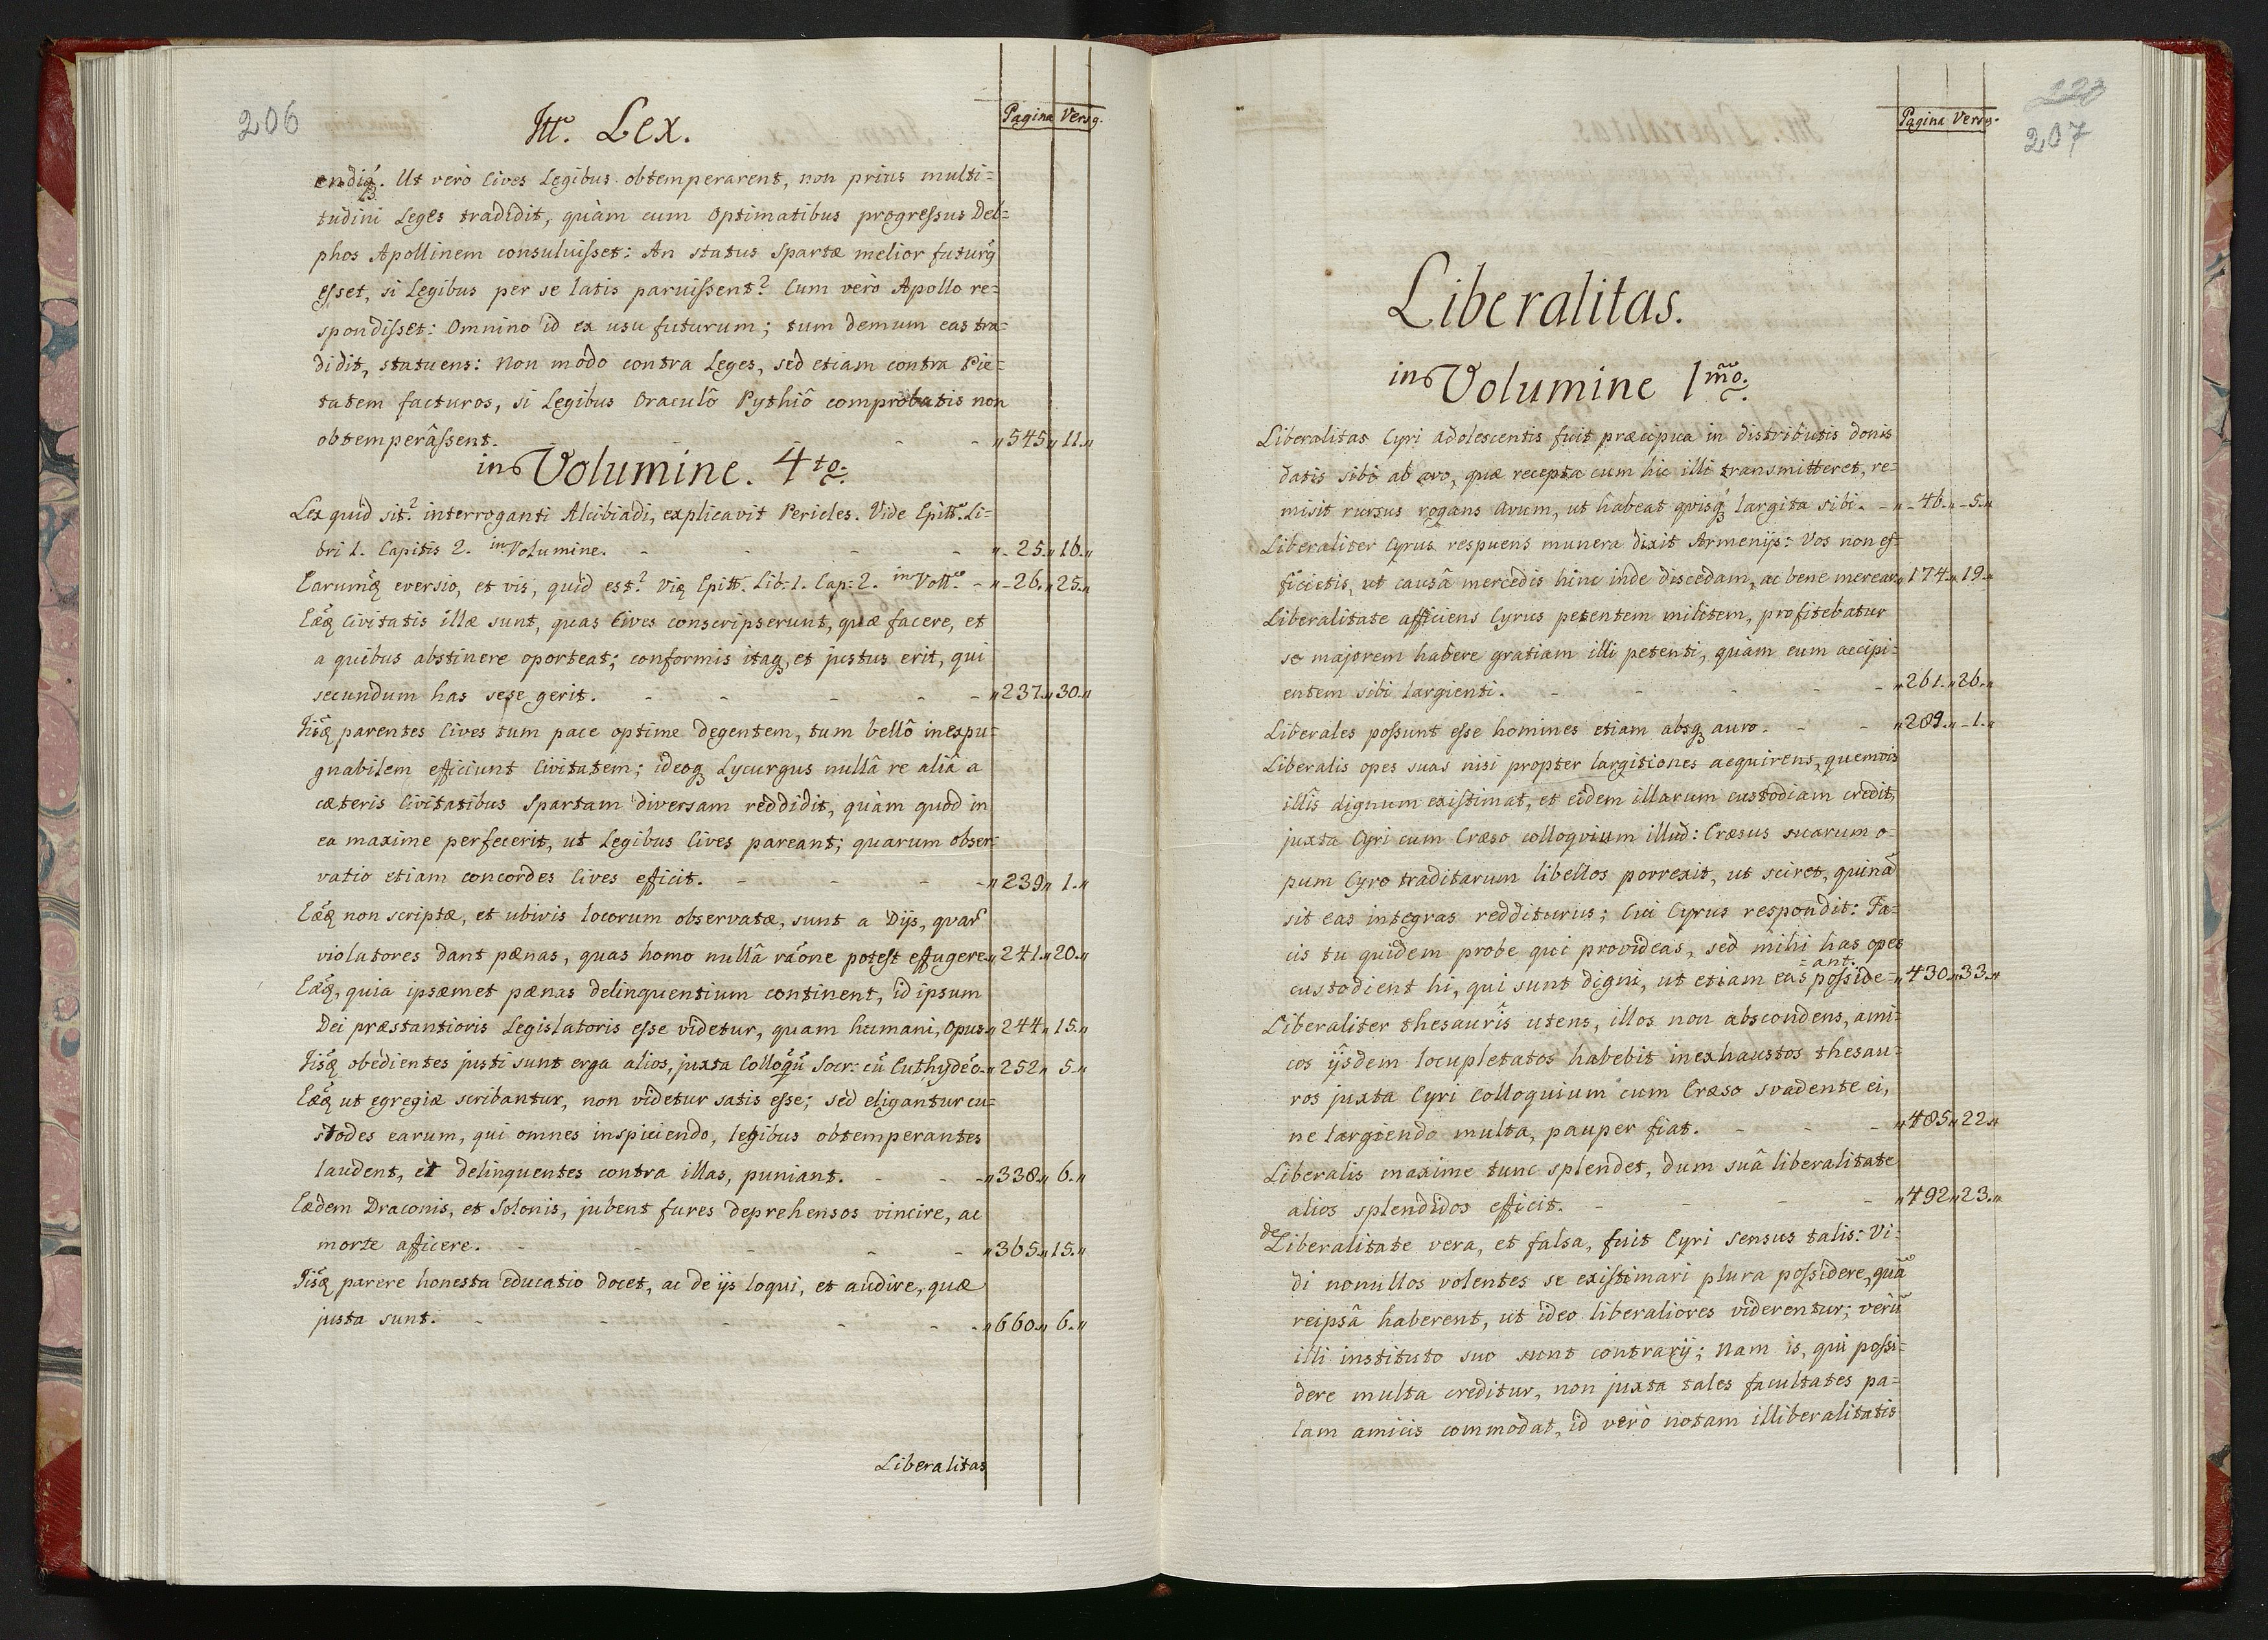 206
Itt. Lex.
Pagina Versq.
endiq́. Ut verò Cives Legibus obtemperarent, non prius multi=
tudini Leges tradidit, quàm cum Optimatibus progressus Del=
phos Apollinem consuluisset: An status Spartæ melior futurq̃
esset, si Legibus per se latis paruissent? Cum verò Apollo re=
spondisset: Omnino id ex usu futurum; tum demum eas tra=
didit, statuens: Non modo contra Leges, sed etiam contra Pie=
tatem facturos, si Legibus Oraculô Pythiô comprobatis non
obtemperâssent. - - „545„ 11.„
in Volumine. 4to.
Lex quid sit? interroganti Alcibiadi, explicavit Pericles. Vide Epitt. Li=
bri 1. Capitis 2. in Volumine. - - - - „- 25.„ 16.„
Earumq̃ eversio, et vis, quid est? Viq Epitt. Lib:1. Cap:2. in Voll. - „-26.„ 25.„
Eæq̃ Civitatis illæ sunt, quas Cives conscripserunt, quæ facere, et
a quibus abstinere oporteat; conformis itaq, et justus erit, qui
secundum has sese gerit. - - - - - „237.„ 30.„
Iisq̃ parentes Cives tum pace optime degentem, tum bellô inexpu=
gnabilem efficiunt Civitatem; ideoq Lycurgus nullâ re aliâ a
cæteris Civitatibus Spartam diversam reddidit, quàm quod in
ea maxime perfecerit, ut Legibus Cives pareant; quarum obser=
vatio etiam concordes Cives efficit. - - - „239„ 1.„
Eæq̃ non scriptæ, et ubivis locorum observatæ, sunt a Dijs, quar̃
violatores dant pænas, quas homo nullâ rãone potest effugere„241.„20.„
Eæq̃, quia ipsæmet pænas delinquentium continent, id ipsum
Dei præstantioris Legislatoris esse videtur, quam humani, Opus„244„ 15.„
Iisq̃ obedientes justi sunt erga alios, juxta Colloqũ Socr: cũ Euthydẽo„252„ 5.„
Eæq̃ ut egregiæ scribantur, non videtur satis esse; sed eligantur cu=
stodes earum, qui omnes inspiciendo, legibus obtemperantes
laudent, et delinquentes contra illas, puniant. - - „338„ 6.„
Eædem Draconis, et Solonis, jubent fures deprehensos vincire, ac
morte afficere. - - - - - „365.„ 15.„
Iisq̃ parere honesta educatio docet, ac de ijs loqui, et audire, quæ
justa sunt. - - - - - „660.„ 6.„
Liberalitas
223
207
Pagina Versq.
Liberalitas.
in Volumine 1mo.
Liberalitas Cyri adolescentis fuit præcipua in distributis donis
datis sibi ab avo, quæ recepta cum hic illi transmitteret, re=
misit rursus rogans avum, ut habeat quisq́ largita sibi. - „-46.„-5.„
Liberaliter Cyrus respuens munera dixit Armenijs: Vos non ef=
ficietis, ut causâ mercedis hinc inde discedam, ac bene merear„174.„19.„
Liberalitate afficiens Cyrus petentem militem, profitebatur
se majorem habere gratiam illi petenti, quàm eum accipi=
entem sibi largienti. - - - - - „261.„26.„
Liberales possunt esse homines etiam absq auro. - - „289.„-1.„
Liberalis opes suas nisi propter largitiones acquirens, quemvis
illîs dignum existimat, et eidem illarum custodiam credit,
juxta Cyri cum Cræso colloquium illud: Cræsus suarum o=
pum Cyro traditarum libellos porrexit, ut sciret, quinã
sit eas integras redditurus; Cui Cyrus respondit: Fa=
cis tu quidem probe qui provideas, sed mihi has opes
custodient hi, qui sunt digni, ut etiam eas posside= „430.„33.„
=ant.
Liberaliter thesauris utens, illos non abscondens, ami=
cos ijsdem locupletatos habebit inexhaustos thesau=
ros juxta Cyri Colloquium cum Cræso svadente ei,
ne largiendo multa, pauper fiat. - - - „485„22„
Liberalis maxime tunc splendet, dum suâ liberalitate
alios splendidos efficit. - - - - „492„23„
de Liberalitate vera, et falsa, fuit Cyri sensus talis: Vi=
di nonullos volentes se existimari plura possidere, quã
reipsâ haberent, ut ideo liberaliores viderentur; verũ
illi instituto suo sunt contrarij; Nam is, qui possi=
dere multa creditur, non juxta tales facultates pa=
lam amicis commodat, id verò notam illiberalitatis